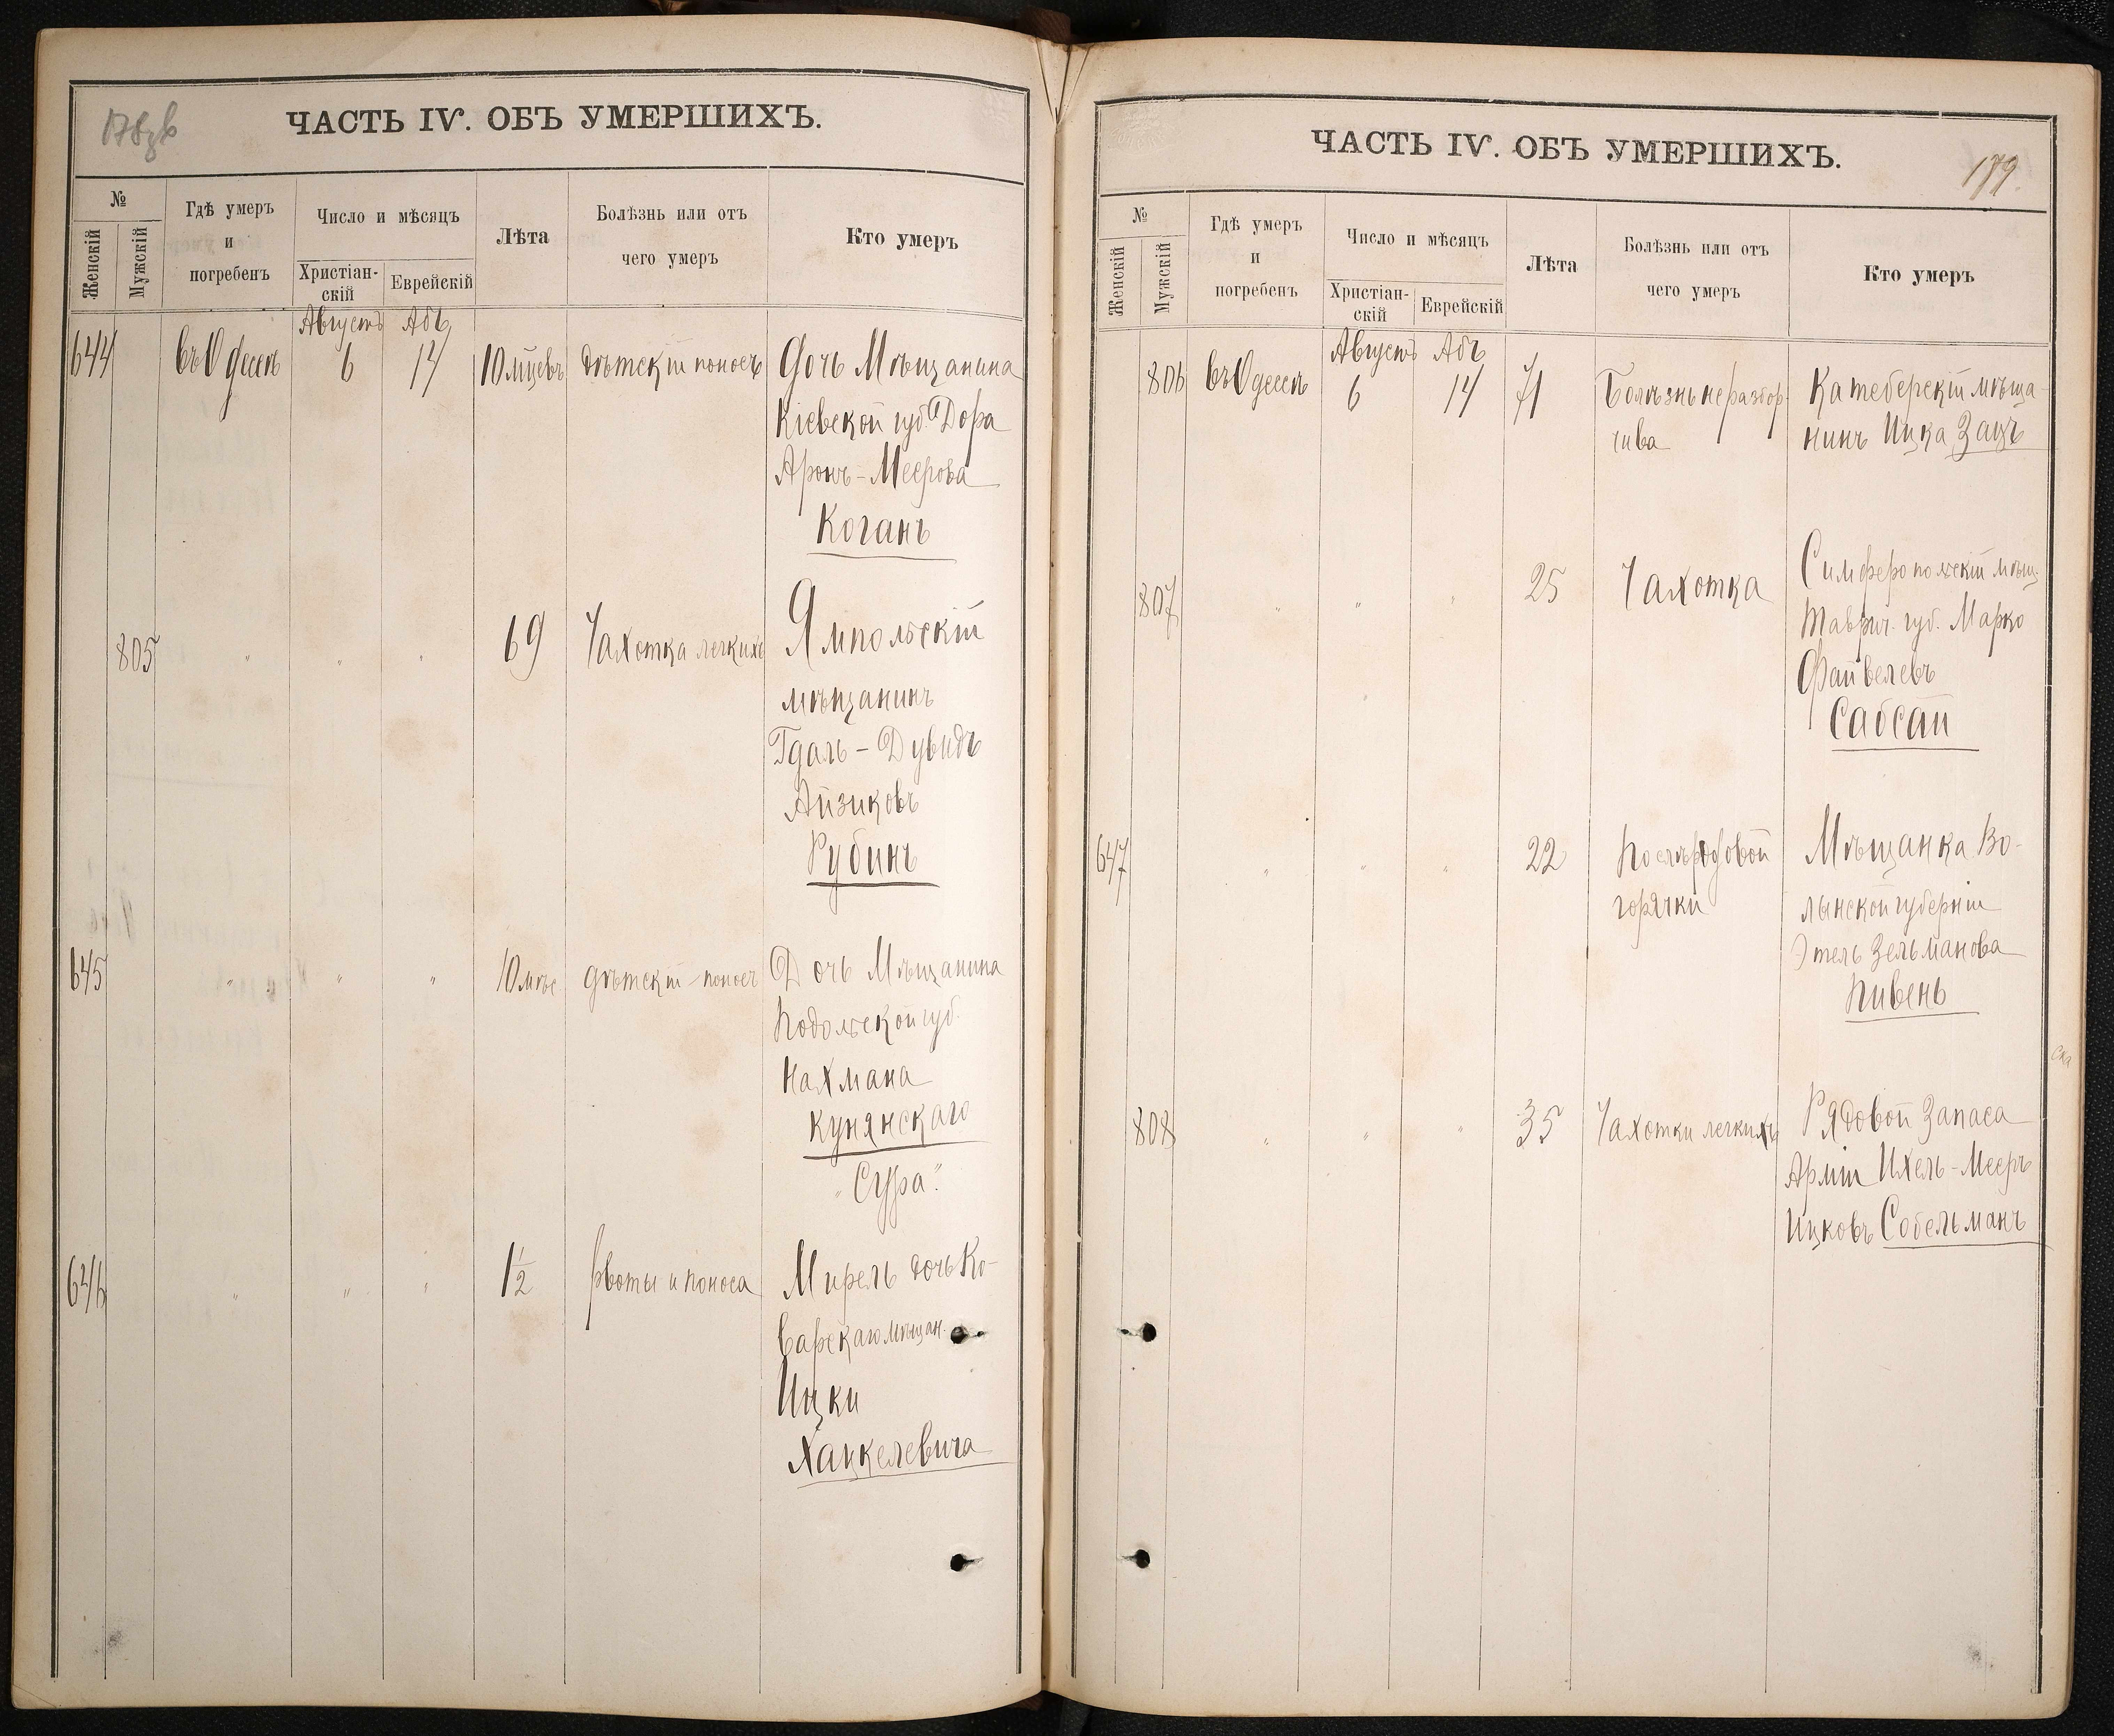 178зв
ЧАСТЬ IV. ОБЪ УМЕРШИХЪ.
№
Женскій
Мужскій
Гдѣ умеръ
и
погребенъ
Число и мѣсяцъ
Христіан-
скій
Еврейскій
Лѣта
Болѣзнь или отъ
чего умеръ
Кто умеръ
Августъ Абъ
644 въ Одессѣ 6 14 10 мцевъ дѣтскій поносъ Дочь Мѣщанина
Кіевской губ. Дора
Аронъ-Меерова
Коганъ
805 " " " 69 Чахотка легкихъ Ямпольскій
мѣщанинъ
Гдаль-Дувидъ
Айзиковъ
Рубинъ
645 " " " 10 мѣс дѣтскій поносъ Дочь Мѣщанина
Подольской губ.
Нахмана
Кунянскаго
"Сура"
646 " " " 1½ рвоты и поноса Мирель дочь Ко-
варскаго мѣщан.
Ицки
Хацкелевича
ЧАСТЬ IV. ОБЪ УМЕРШИХЪ.
179
№
Женскій
Мужскій
Гдѣ умеръ
и
погребенъ
Число и мѣсяцъ
Христіан-
скій
Еврейскій
Лѣта
Болѣзнь или отъ
чего умеръ
Кто умеръ
Августъ Абъ
806 въ Одессѣ 6 14 71 Болѣзнь неразбор- Катеберскій мѣща-
чива нинъ Ицка Зацъ
807 " " " 25 Чахотка Симферопольскій мѣщ.
Таврич. губ. Марко
Файвелевъ
Сабсай
647 " " " 22 Послѣродовой Мѣщанка Во-
горячки лынской губерніи
Этель Зельманова
Пивень
808 " " " 35 Чахотки легкихъ Рядовой Запаса
Арміи Ихель-Мееръ
Ицковъ Собельманъ